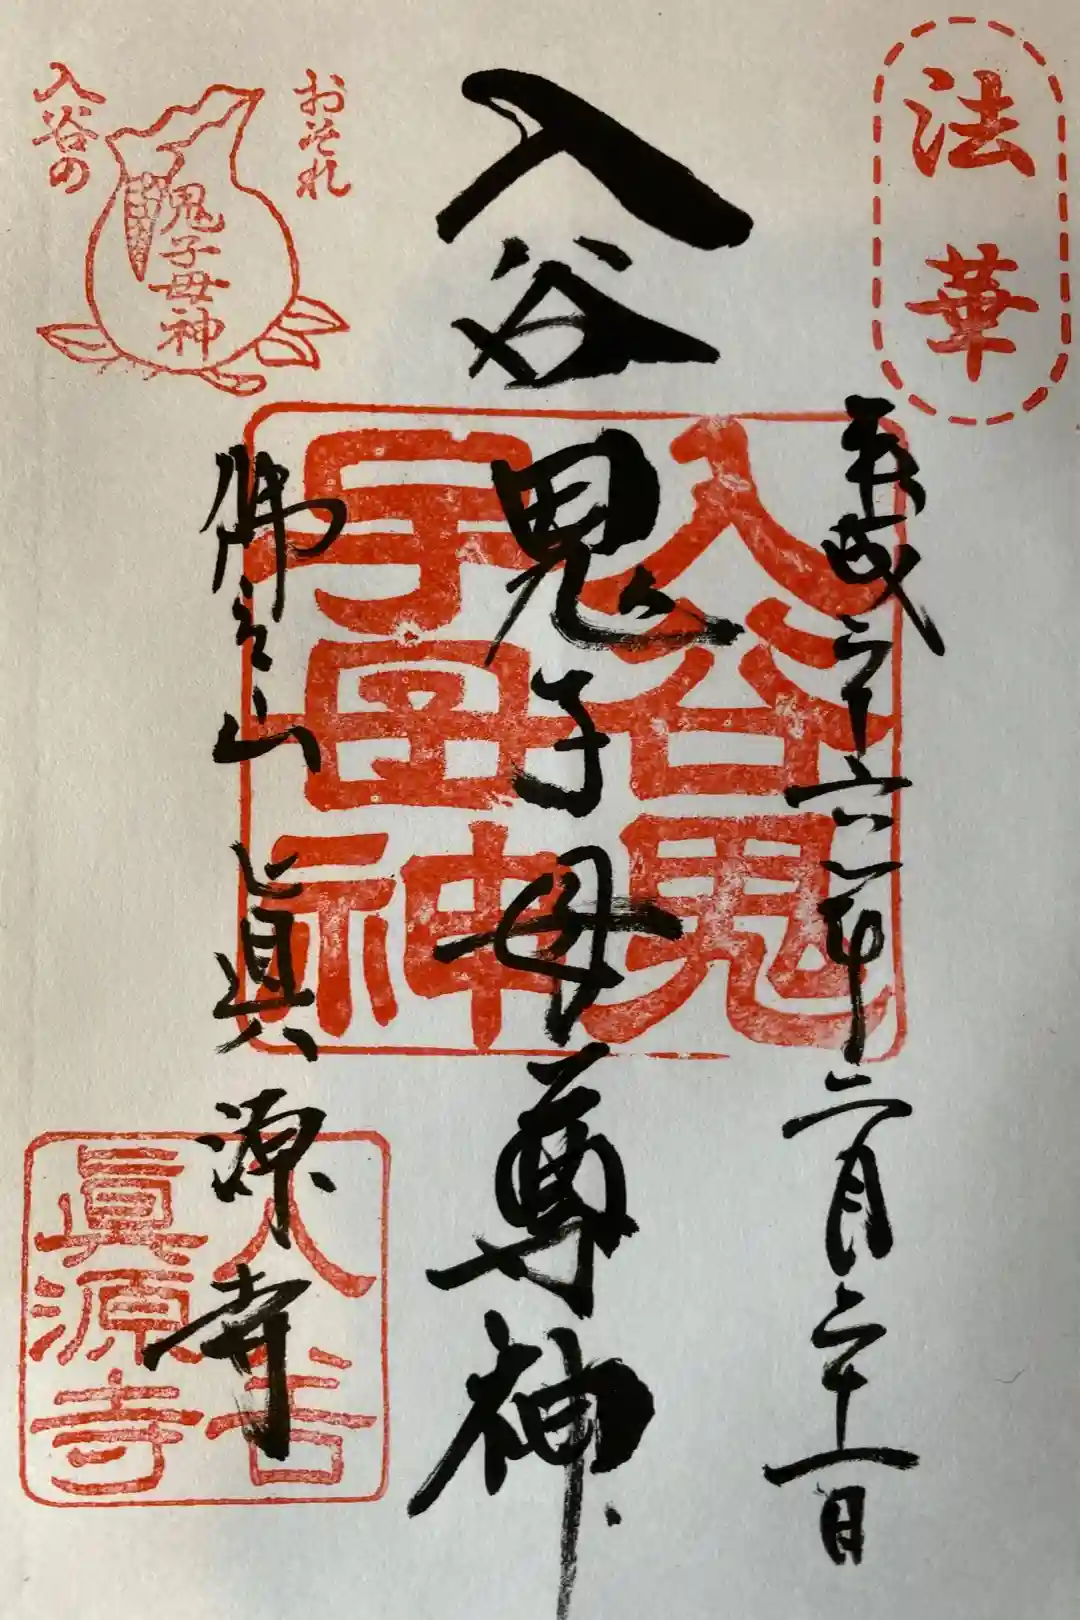 法華
平成二十六年二月二十一日
入谷鬼子母尊神
入谷鬼
子母神
おそれ
入谷の
鬼子母神
佛立山 眞源寺
入谷
眞源寺